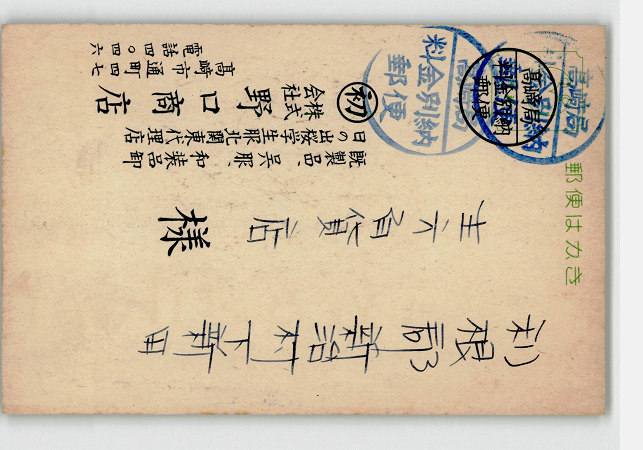 郵便はがき
高崎局
料金別納
郵便
高崎局
料金別納
郵便
高崎局
料金別納
郵便
利根郡新治村下新田
六百貨店 様
既製品、呉服、和装品卸
日の出桜学生服北関東代理店
初 株式会社 野口商店
高崎市通町四七
電話四〇四六